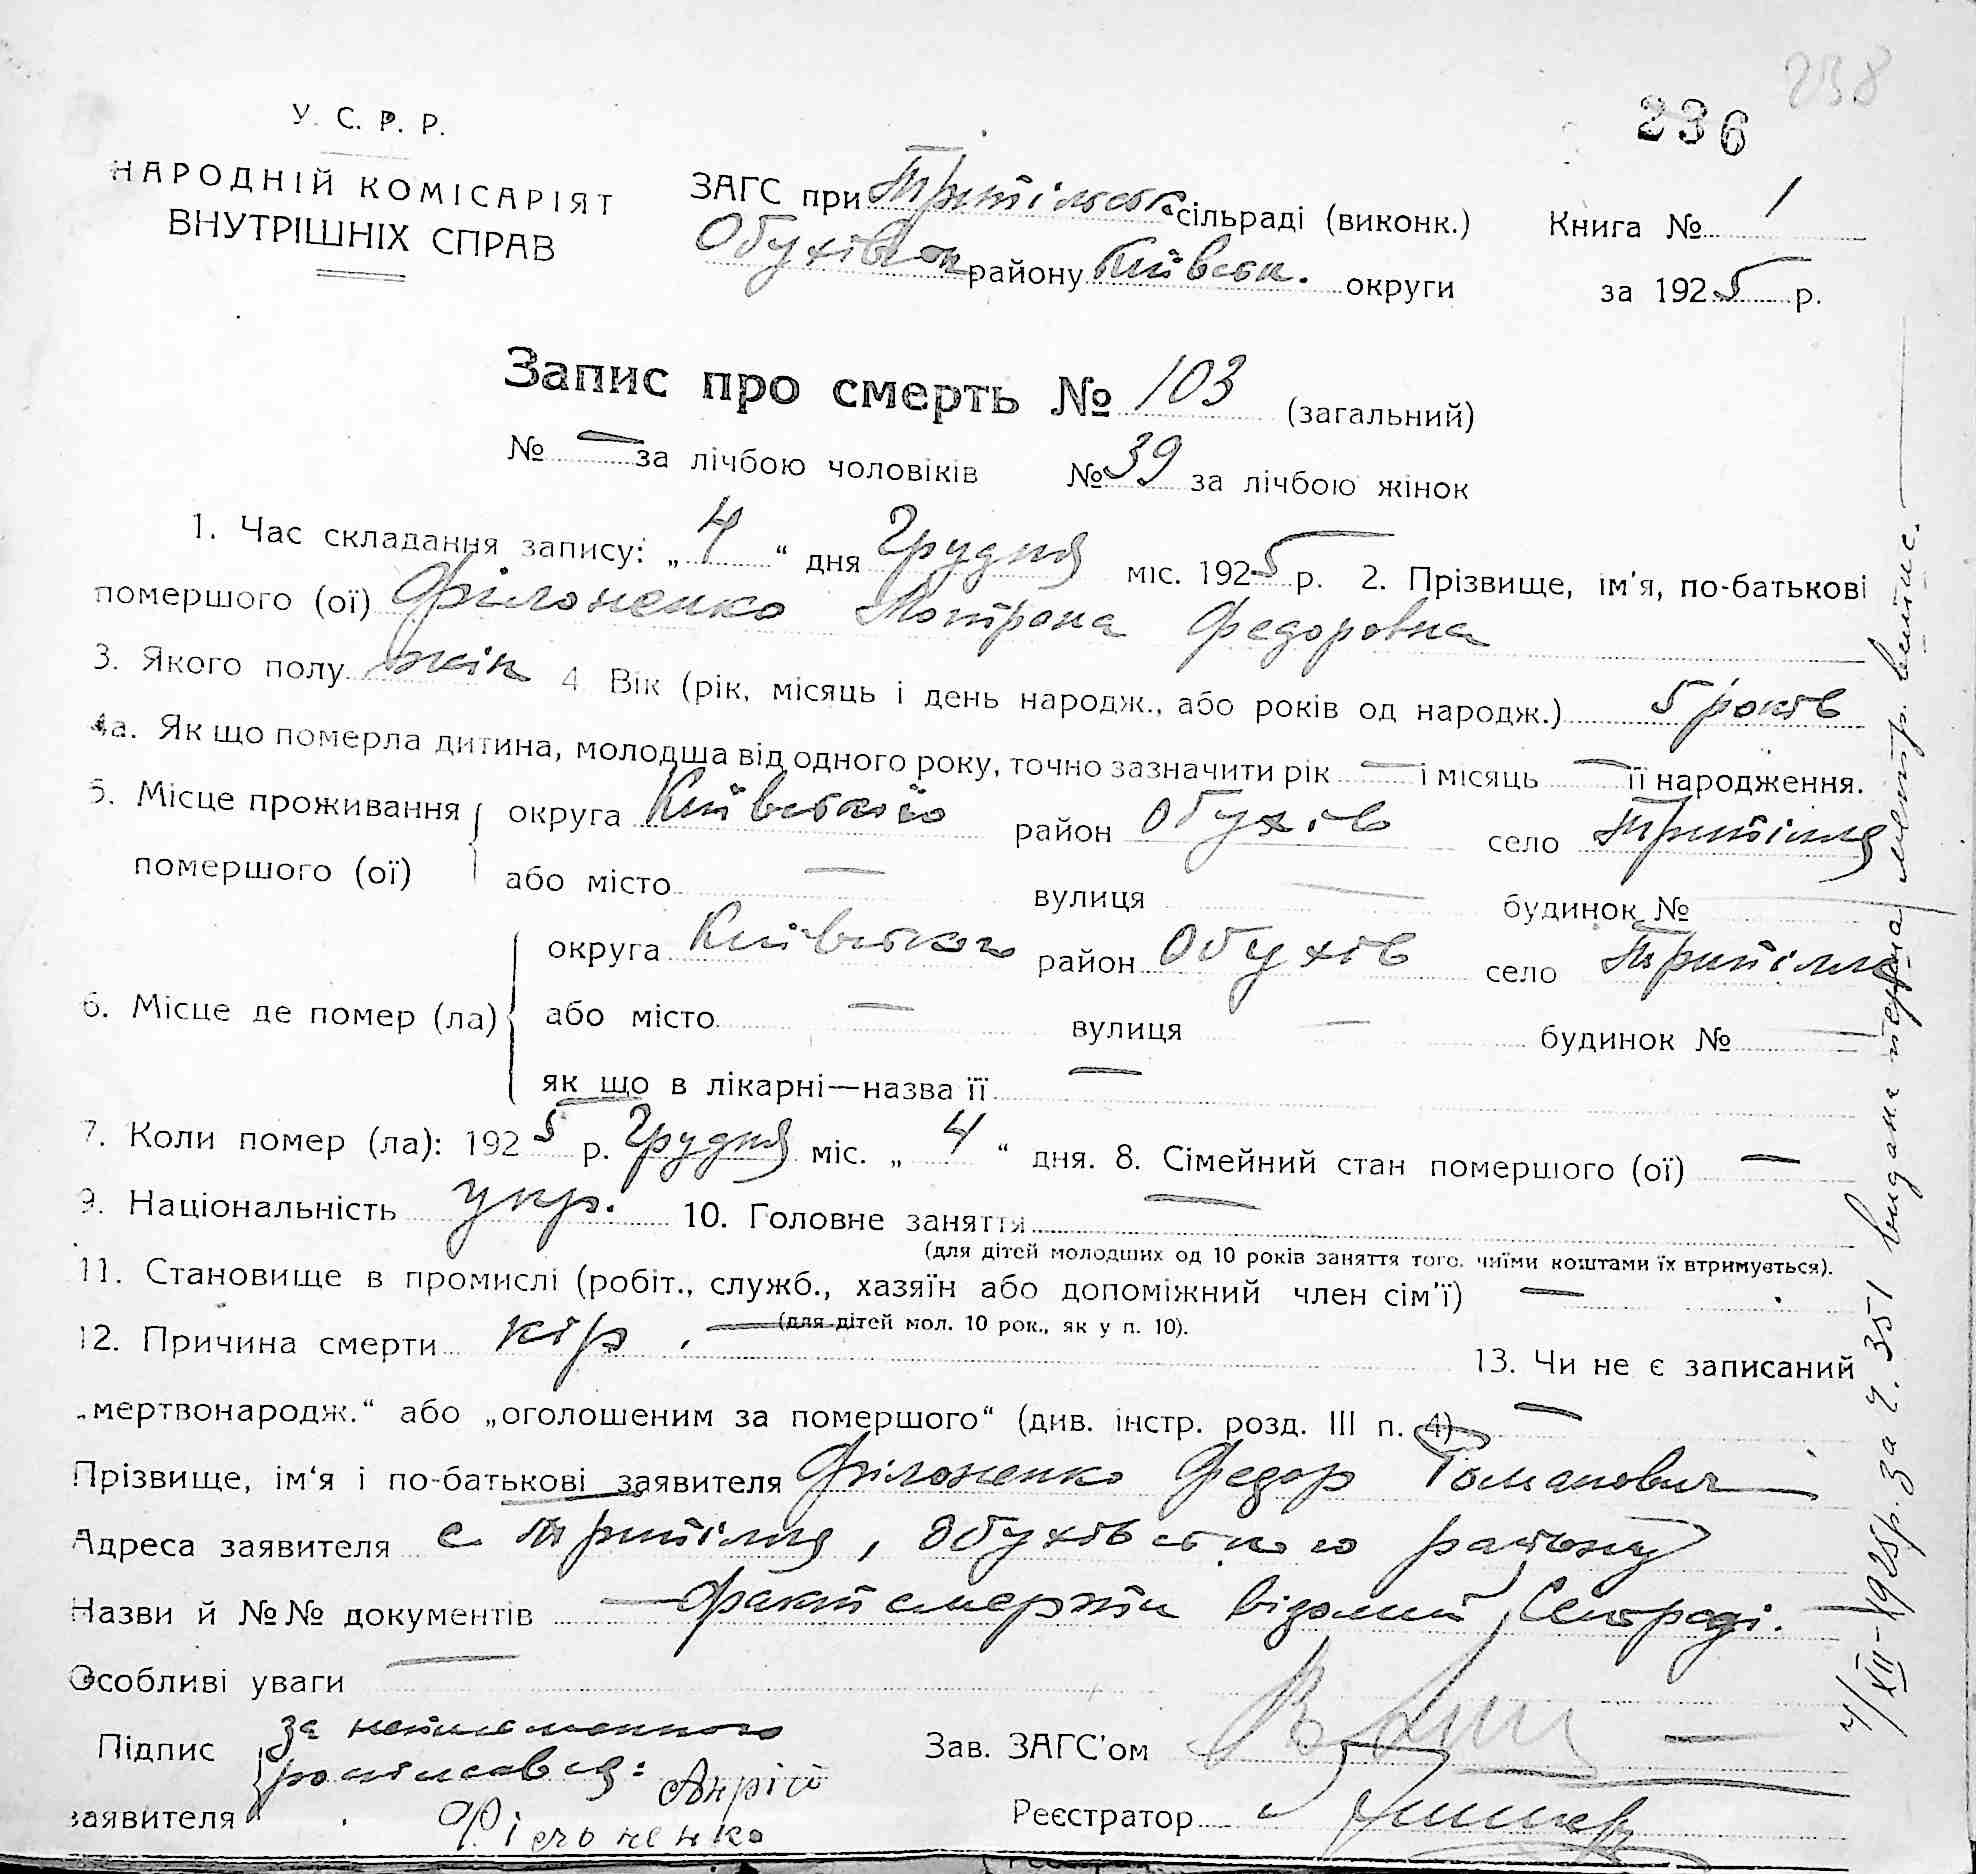 238
236
У. С. Р. Р.
НАРОДНІЙ КОМІСАРІЯТ
ВНУТРІШНІХ СПРАВ
ЗАГС при Трипільськ. сільраді (виконк.)
Обухівськ. району Київськ. округи
Книга № 1
за 1925 р.
Запис про смерть № 103 (загальний)
№ — за лічбою чоловіків № 39 за лічбою жінок
1. Час складання запису: „4“ дня Грудня міс. 1925 р. 2. Прізвище, ім'я, по-батькові
помершого (ої) Філоненко Мотрона Федоровна
3. Якого полу жін 4. Вік (рік, місяць і день народж., або років од народж.) 5 років
4а. Як що померла дитина, молодша від одного року, точно зазначити рік — і місяць — її народження.
5. Місце проживання помершого (ої) округа Київського район Обухів село Трипілля
або місто — вулиця — будинок № —
6. Місце де помер (ла) округа Київського район Обухів село Трипілля
або місто — вулиця — будинок № —
як що в лікарні—назва її —
7. Коли помер (ла): 1925 р. Грудня міс. „4“ дня. 8. Сімейний стан помершого (ої) —
9. Національність укр. 10. Головне заняття —
(для дітей молодших од 10 років заняття того, чиїми коштами їх втримується).
11. Становище в промислі (робіт., служб., хазяїн або допоміжний член сім'ї) —
(для дітей мол. 10 рок., як у п. 10).
12. Причина смерти кір. — 13. Чи не є записаний
„мертвонародж.“ або „оголошеним за помершого“ (див. інстр. розд. III п. 4) —
Прізвище, ім'я і по-батькові заявителя Філоненко Федор Романович —
Адреса заявителя с. Трипілля, Обухівського району
Назви й №№ документів — факт смерти відомий Сільраді. —
Особливі уваги —
Підпис заявителя за неписьменного
розписався: Андрій
Філоненко
Зав. ЗАГС'ом
Реєстратор
4/XII-1925р. за ч. 351 видана перша метр. випис. —